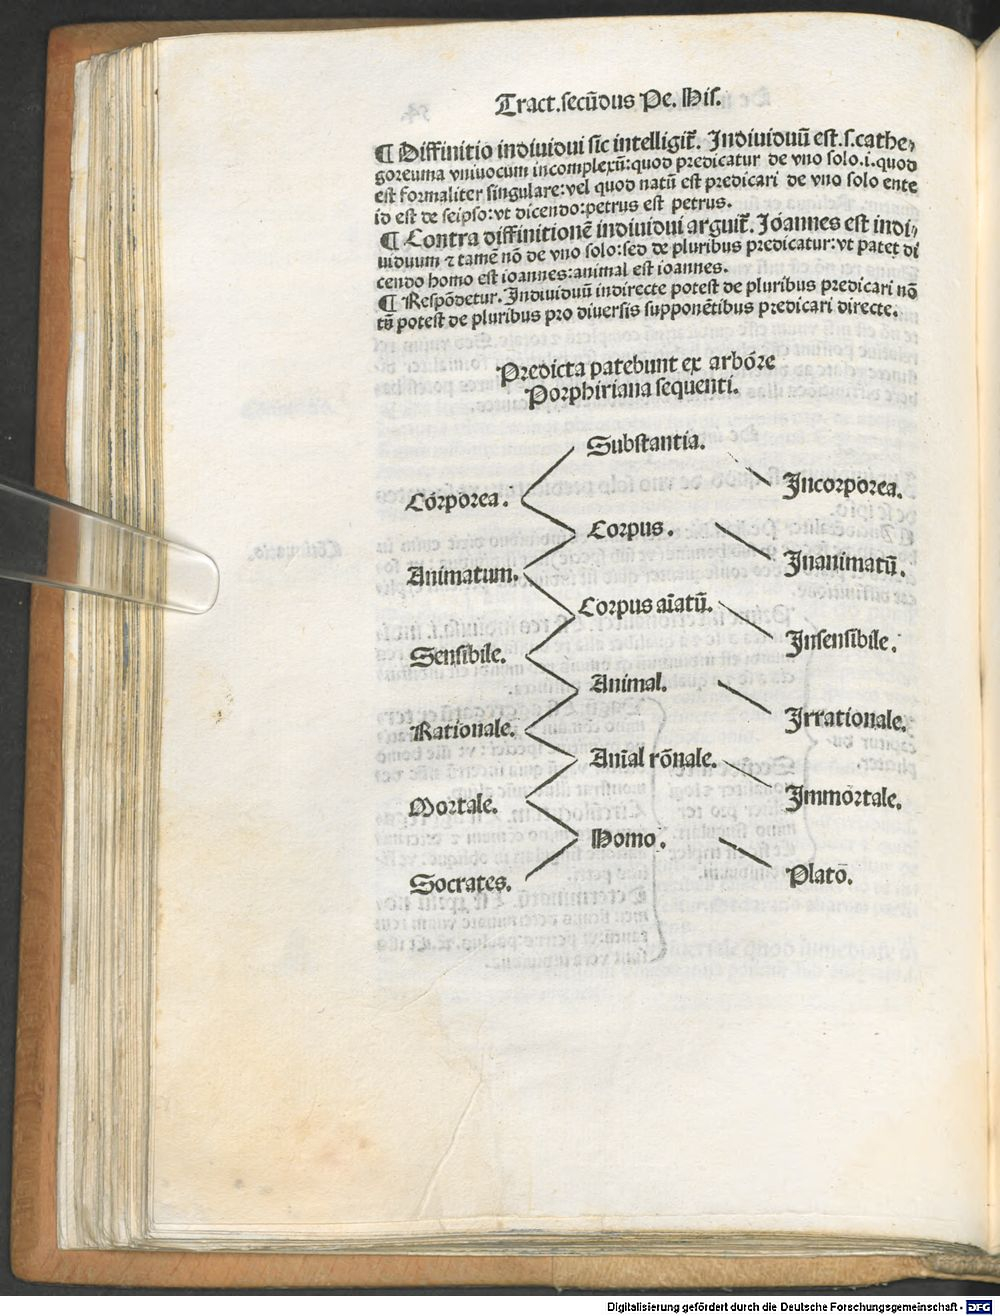 Tract.secūdus Pe. His.
¶ Diffinitio indiuidui sic intelligit̄. Indiuiduū est.s.cathe-
goreuma vniuocum incomplexū:quod predicatur de vno solo.i.quod
est formaliter singulare:vel quod natū est predicari de vno solo ente
id est de seipso:vt dicendo:petrus est petrus.
¶ Contra diffinitionē indiuidui arguit̄. Joannes est indi-
uiduum ⁊ tamē nō de vno solo:sed de pluribus predicatur:vt patet di
cendo homo est ioannes:animal est ioannes.
¶ Respōdetur. Indiuiduū indirecte potest de pluribus predicari nō
tn̄ potest de pluribus pro diuersis supponētibus predicari directe.
Predicta patebunt ex arbore
Porphiriana sequenti.
Substantia.
Corporea. Incorporea.
Corpus.
Animatum. Inanimatū.
Corpus aīatū.
Sensibile. Insensibile.
Animal.
Rationale. Irrationale.
Anīal rōnale.
Mortale. Immortale.
Homo.
Socrates. Platō.
Digitalisierung gefördert durch die Deutsche Forschungsgemeinschaft - DFG